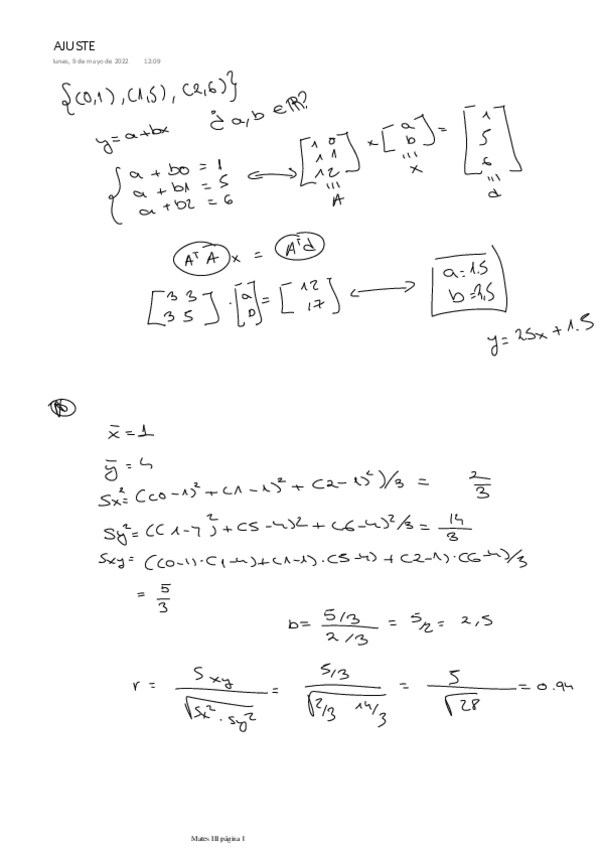 AJUSTE
lunes, 9 de mayo de 2022 12:09
{(0,1), (1,5), (2,6)}
y = a+bx ¿ a,b ∈ ℝ?
{ a + b0 = 1
a + b1 = 5
a + b2 = 6
⟷ [1 0
1 1
1 2] × [a
b] = [1
5
6]
A x d
AᵀA x = Aᵀd
[3 3
3 5] · [a
b] = [12
17] ⟷ a = 1.5
b = 2,5
y = 25x + 1.5
x̄ = 1
ȳ = 4
Sx² = ((0-1)² + (1-1)² + (2-1)²)/3 = 2/3
Sy² = ((1-4)² + (5-4)2 + (6-4)²/3 = 14/3
Sxy = ((0-1)·(1-4)+(1-1)·(5-4) + (2-1)·(6-4)/3
= 5/3
b = (5/3)/(2/3) = 5/2 = 2,5
r = Sxy/√(Sx²·Sy²) = (5/3)/√(2/3 14/3) = 5/√28 = 0.94
Mates III página 1